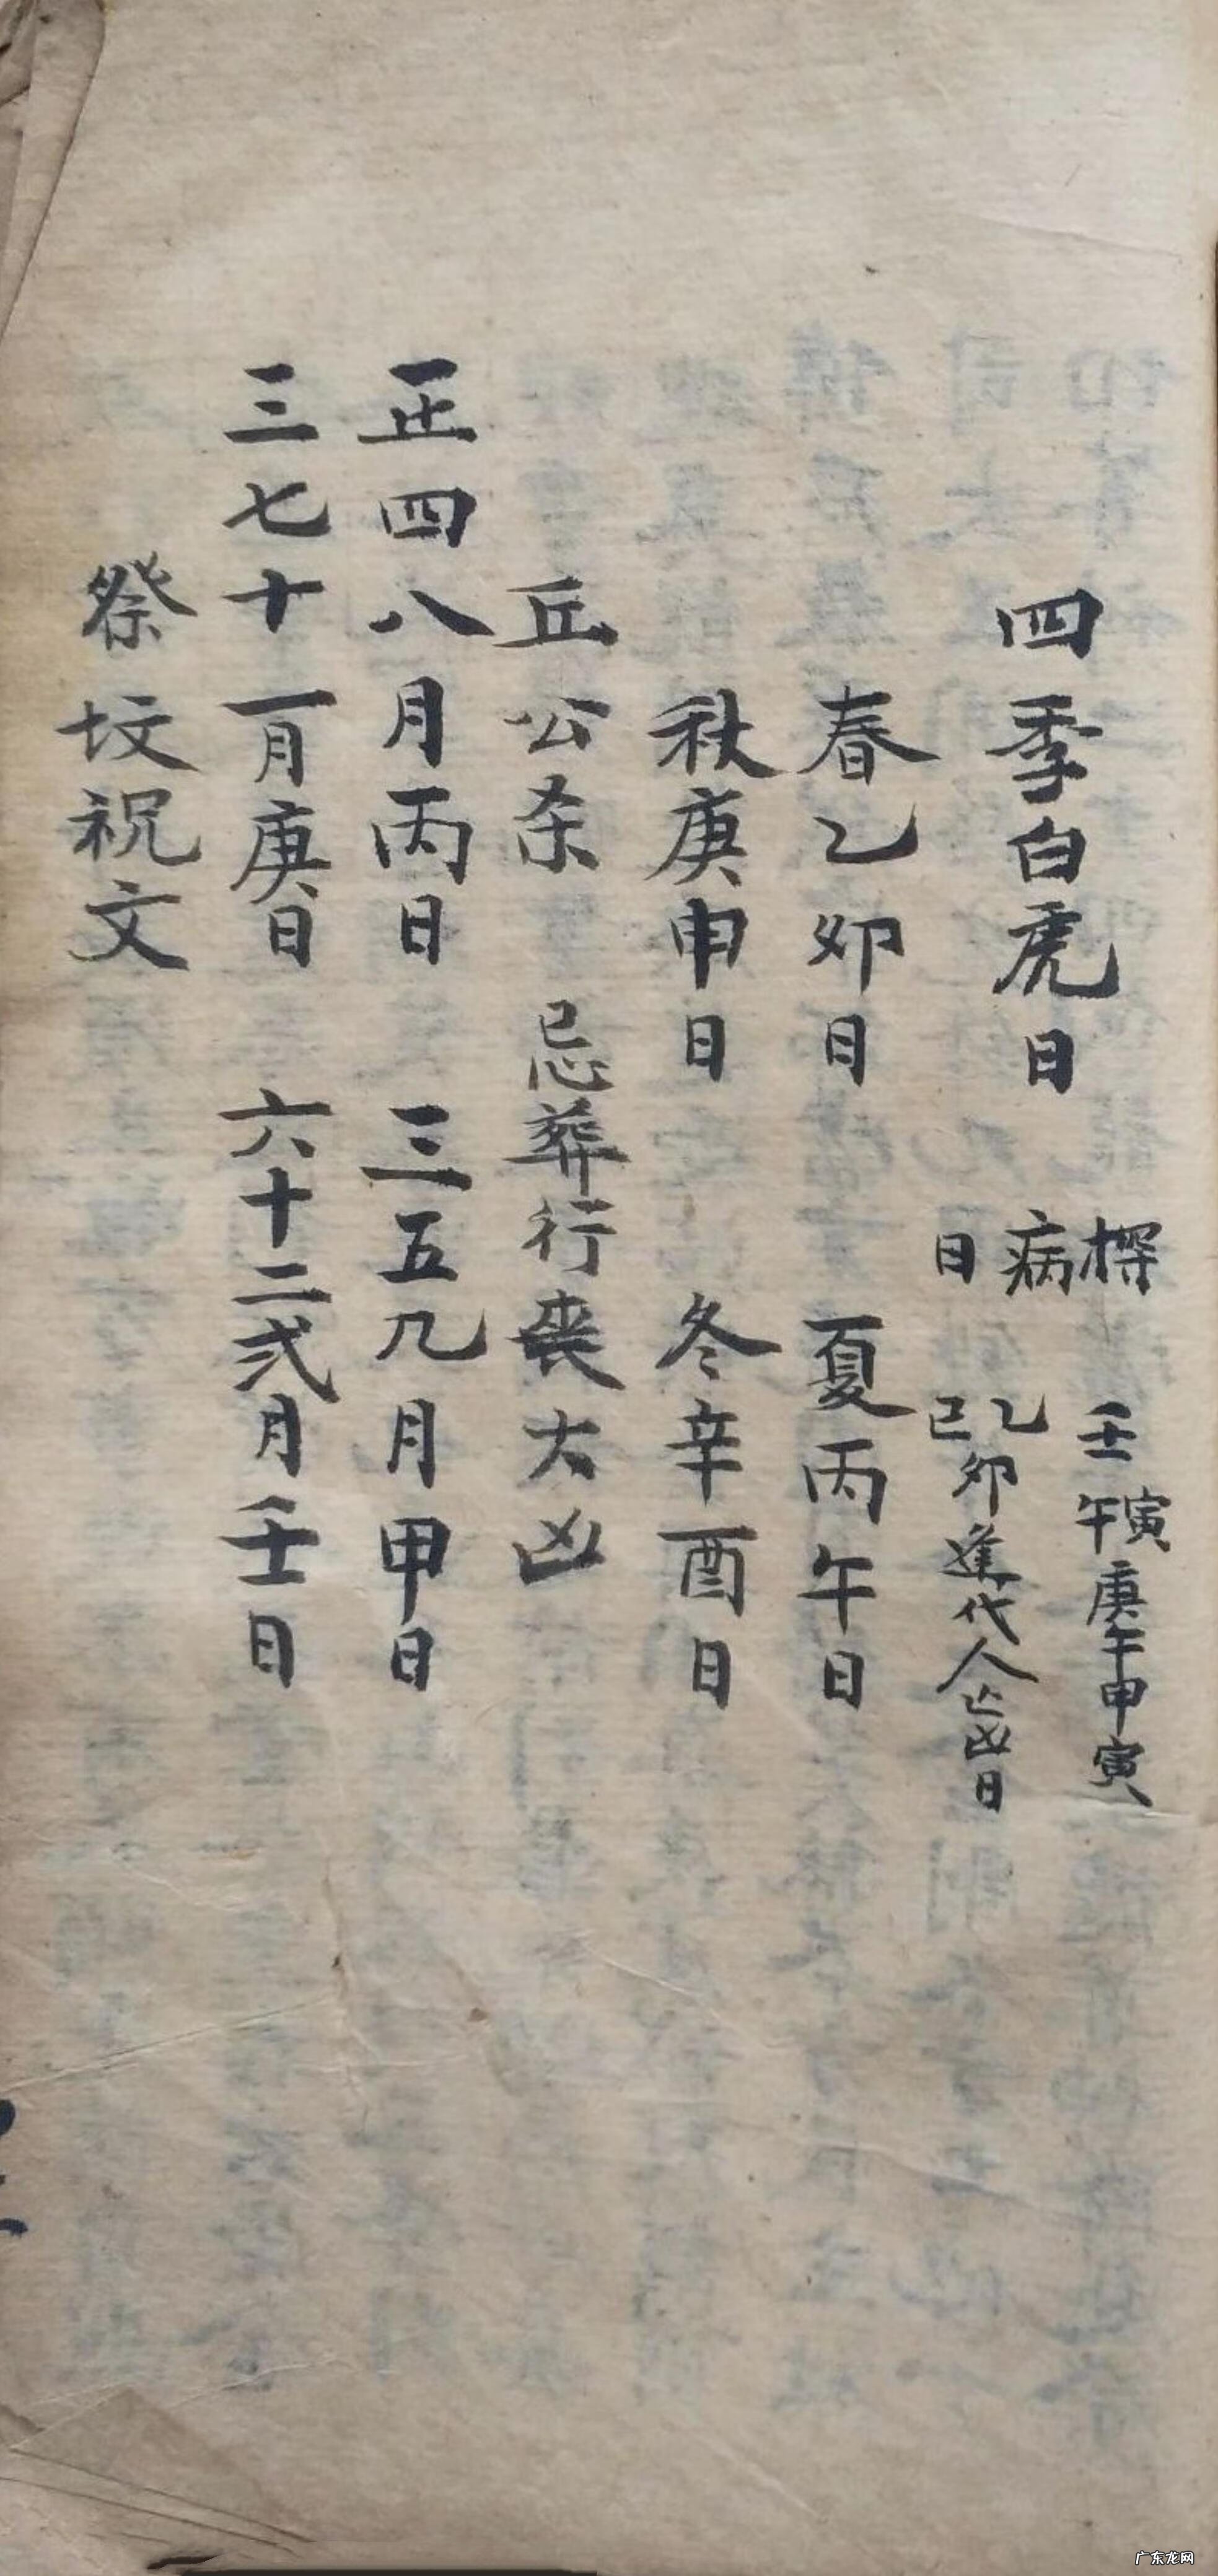 四季白虎日
探病日
壬寅
午庚午甲寅
乙卯
己
逢代人皆凶日
春乙卯日 夏丙午日
秋庚申日 冬辛酉日
丘公杀 忌葬行丧大凶
正四八月丙日 三五九月甲日
三七十一月庚日 六十二弍月壬日
祭坟祝文
广东龙网